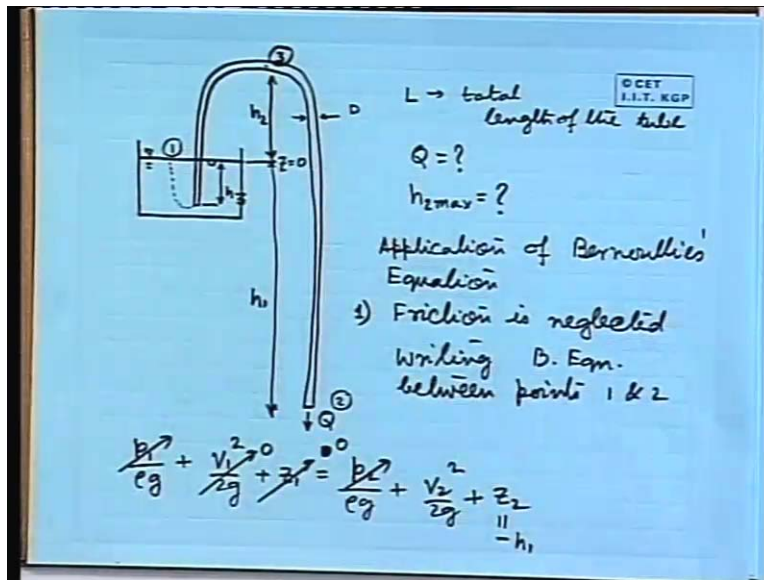 ③
h₂
D
①
Z=0
h₃
h₁
②
Q
L → total
length of the tube
© CET
I.I.T. KGP
Q = ?
h₂max = ?
Application of Bernoullies'
Equation
1) Friction is neglected
Writing B. Eqn.
between points 1 & 2
p₁/ρg + V₁²/2g 0 + z₁ 0 = p₂/ρg + V₂²/2g + Z₂
||
-h₁